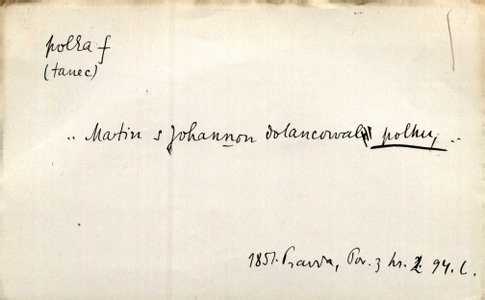 polka f
(tanec)
„ Martin s Johannon dotancowali polku, "
1851. Pravda, Pov. z hr. 2. 94. č.